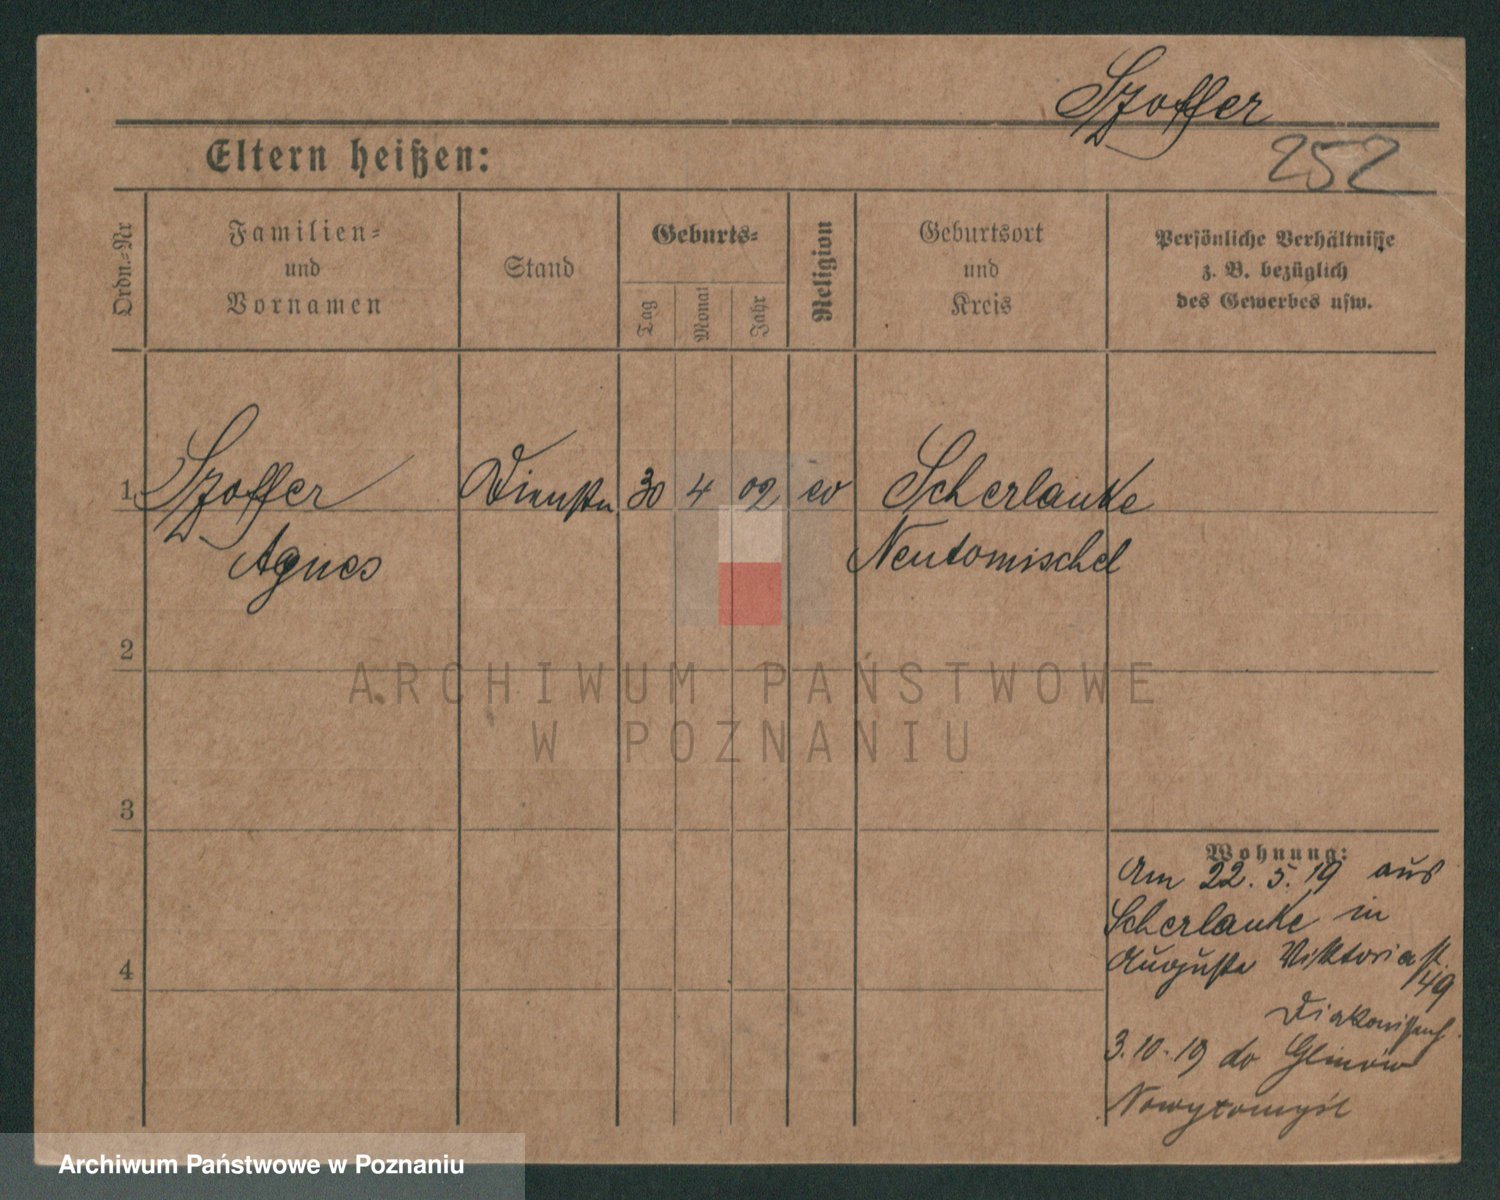 Szoffer
252
Eltern heißen:
Ordn.-Nr
Familien-
und
Vornamen
Stand
Geburts-
Tag
Monat
Jahr
Religion
Geburtsort
und
Kreis
Persönliche Verhältnisse
z. B. bezüglich
des Gewerbes usw.
1 Szoffer Dienstm 30 4 02 ev Scherlanke
Agnes Neutomischel
2
3
4
Wohnung:
Am 22.5.19 aus
Scherlanke in
Auguste Viktoriast.
149
3.10.19 do Glinów
Nowytomyśl
ARCHIWUM PAŃSTWOWE
W POZNANIU
Archiwum Państwowe w Poznaniu